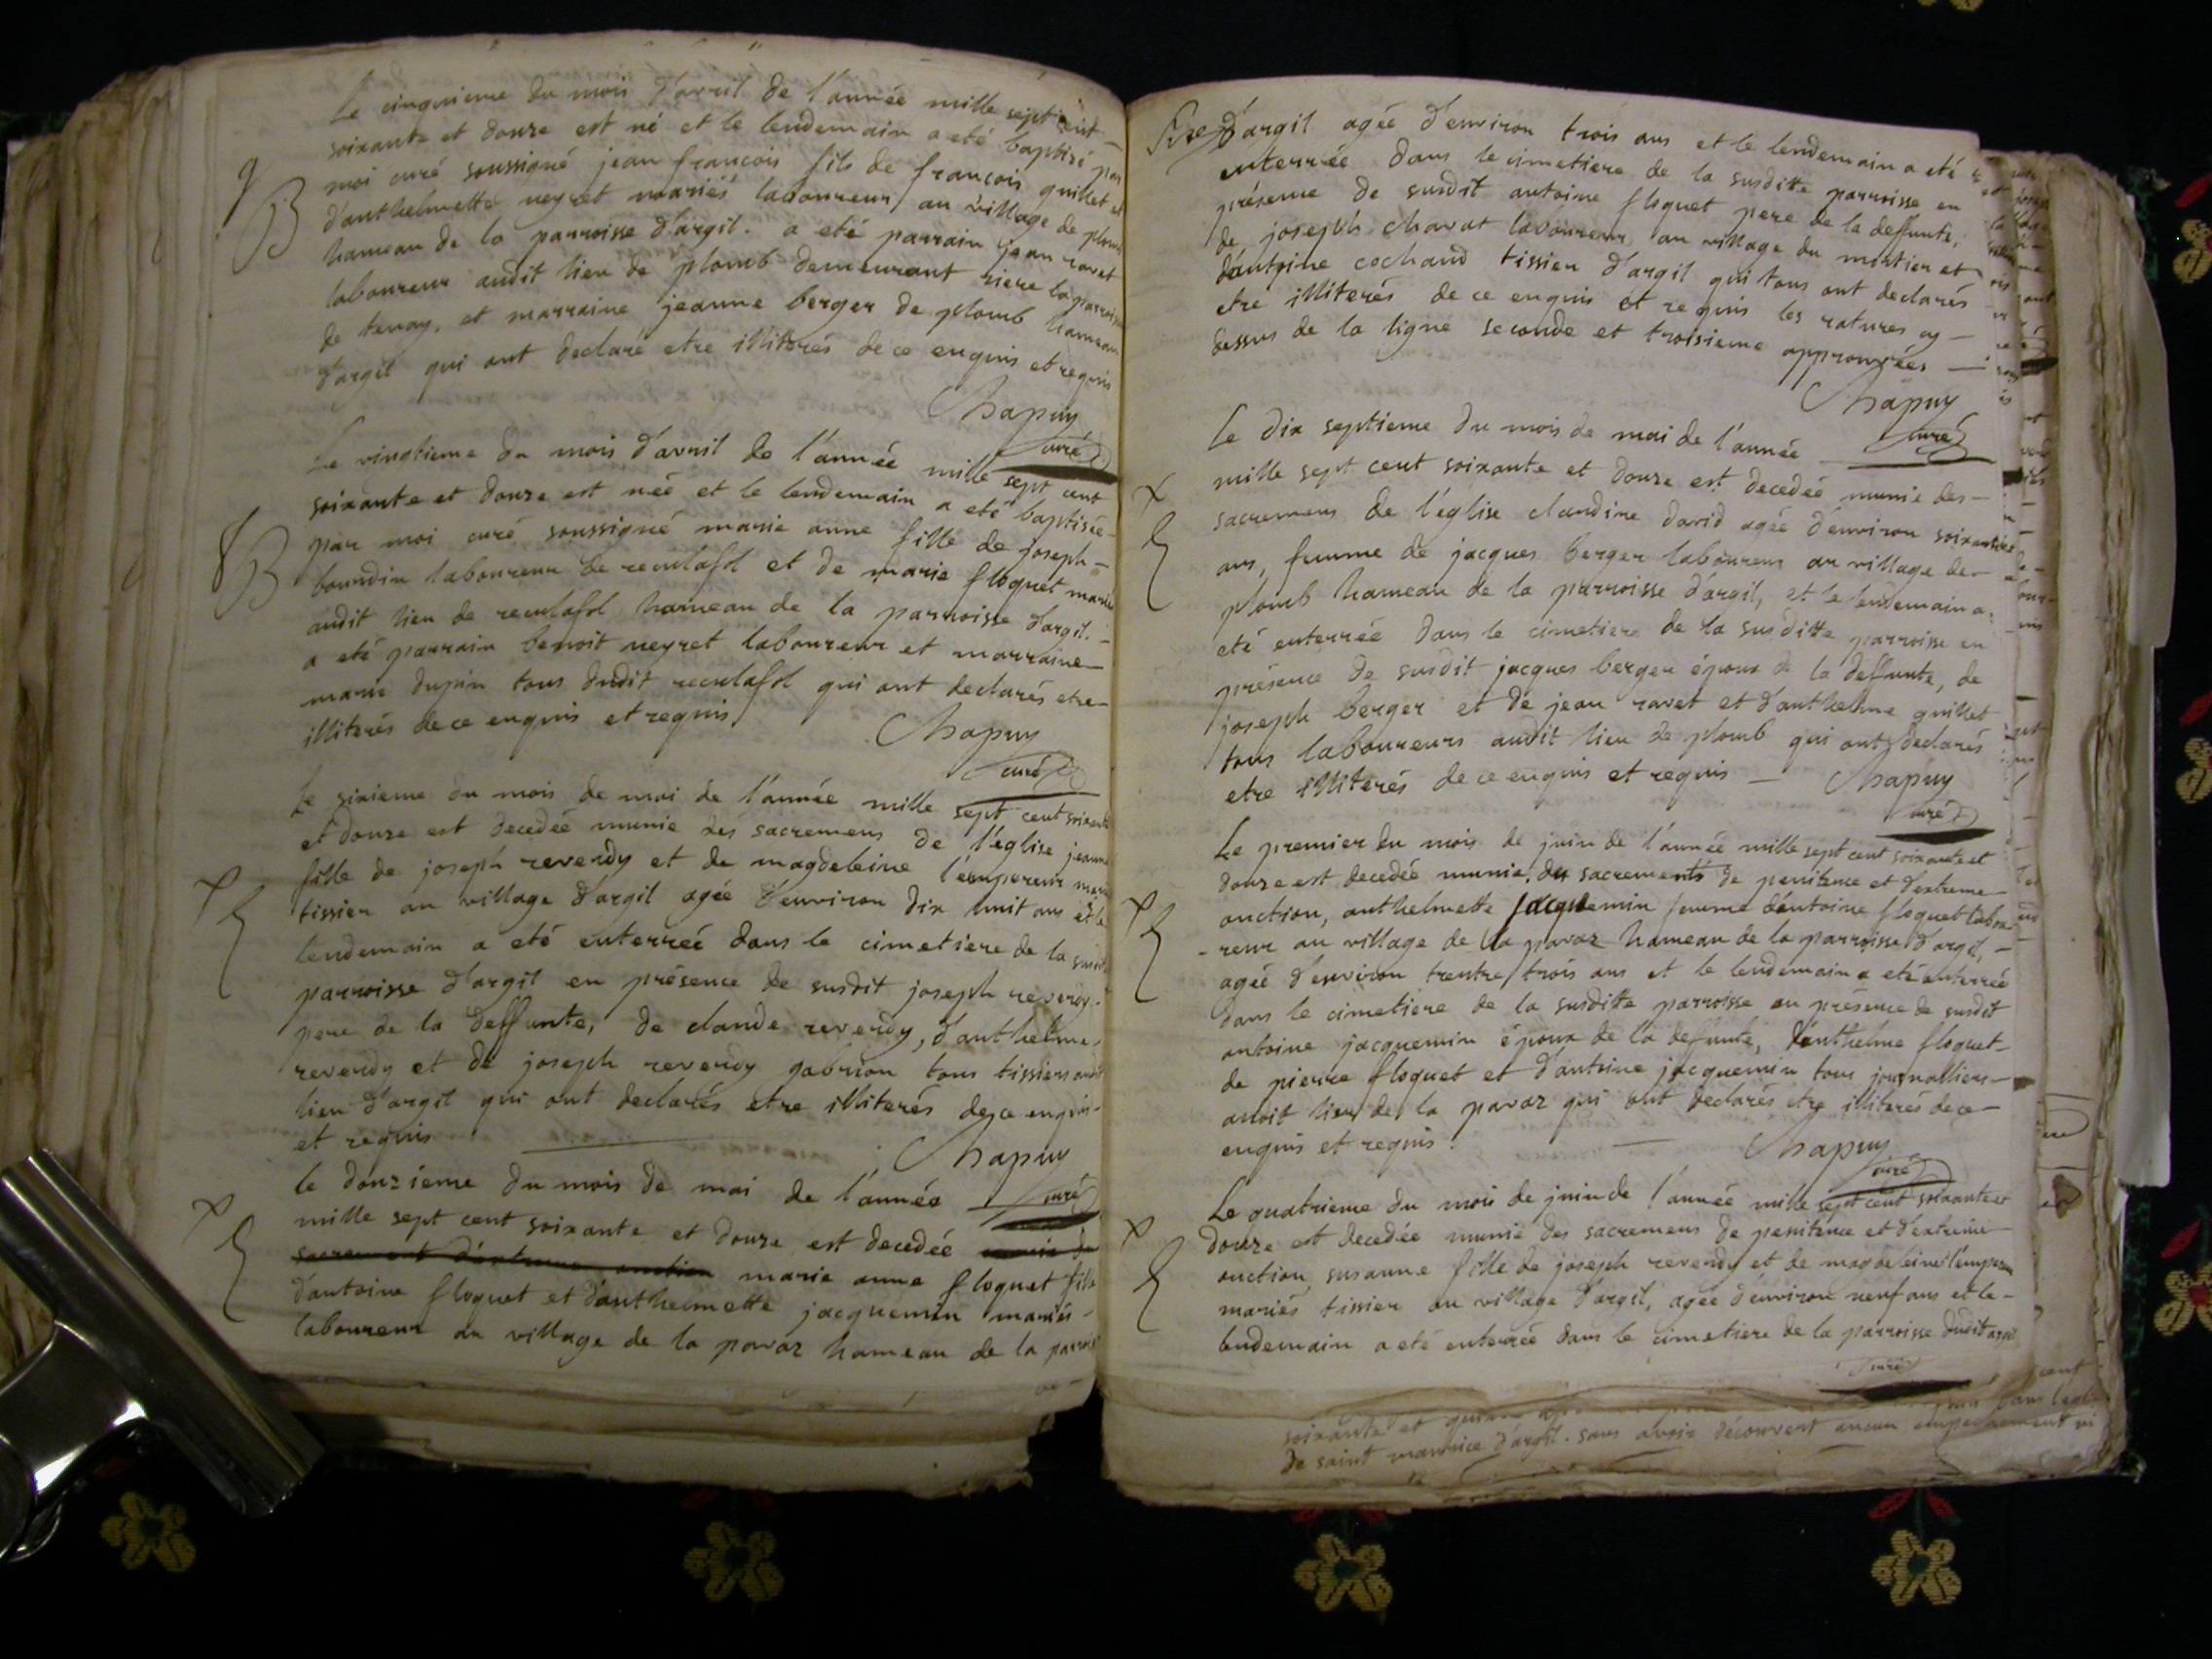 Le cinquieme du mois d'avril de l'année mille sept cent
soixante et douze est né et le lendemain a eté baptisé par
moi curé soussigné jean françois fils de françois quillet et
d'anthelmette neyret mariés laboureur au village de plomb
hameau de la parroisse d'argil. a eté parrain jean ravet
laboureur audit lieu de plomb demeurant riere la parroisse
de tenay, et marraine jeanne berger de plomb hameau
d'argil qui ont declaré etre illiterés de ce enquis et requis
Chapuy
curé
9
B
Le vingtieme du mois d'avril de l'année mille sept cent
soixante et douze est née et le lendemain a eté baptisée
par moi curé soussigné marie anne fille de joseph
laboureur de reculafol et de marie floquet mariés
audit lieu de reculafol hameau de la parroisse d'argil.
a eté parrain benoit neyret laboureur et marraine
marie dupin tous dudit reculafol qui ont declarés etre
illiterés de ce enquis et requis
Chapuy
curé
B
Le sixieme du mois de mai de l'année mille sept cent soixante
et douze est decedée munie des sacremens de l'église jeanne
fille de joseph reverdy et de magdeleine l'empereur mariés
tissier au village d'argil agée d'environ dix huit ans et le
lendemain a eté enterrée dans le cimetiere de la susditte
parroisse d'argil en présence de susdit joseph reverdy
pere de la deffunte, de claude reverdy, d'anthelme
reverdy et de joseph reverdy gabrion tous tissiers audit
lieu d'argil qui ont declarés etre illiterés de ce enquis
et requis
Chapuy
curé
le douzieme du mois de mai de l'année
mille sept cent soixante et douze est decedée munie du
sacrement d'extreme onction marie anne floquet fille
d'antoine floquet et d'anthelmette jacquemin mariés
laboureur au village de la pavaz hameau de la parroisse
d'argil agée d'environ trois ans et le lendemain a eté
enterrée dans le cimetiere de la susditte parroisse en
présence de susdit antoine floquet pere de la deffunte,
de joseph charat laboureur au village du mortier et
d'antoine cochand tissier d'argil qui tous ont declarés
etre illiterés de ce enquis et requis les ratures cy
dessus de la ligne seconde et troisieme approuvées
Chapuy
curé
Le dix septieme du mois de mai de l'année
mille sept cent soixante et douze est decedée munie des
sacremens de l'église claudine david agée d'environ soixante
ans, femme de jacques berger laboureur au village de
plomb hameau de la parroisse d'argil, et le lendemain a
eté enterrée dans le cimetiere de la susditte parroisse en
présence de susdit jacques berger époux de la deffunte, de
joseph berger et de jean ravet et d'anthelme quillet
tous laboureurs audit lieu de plomb qui ont declarés
etre illiterés de ce enquis et requis
Chapuy
curé
Le premier du mois de juin de l'année mille sept cent soixante et
douze est decedée munie des sacrements de penitence et d'extreme
onction, anthelmette jacquemin femme d'antoine floquet labou
-reur au village de la pavaz hameau de la parroisse d'argil,
agée d'environ trentre trois ans et le lendemain a eté enterrée
dans le cimetiere de la susditte parroisse en présence de susdit
antoine jacquemin époux de la defunte, d'anthelme floquet
de pierre floquet et d'antoine jacquemin tous journalliers
audit lieu de la pavaz qui ont declarés etre illiterés de ce
enquis et requis.
Chapuy
curé
Le quatrieme du mois de juin de l'année mille sept cent soixante et
douze est decedée munie des sacremens de penitence et d'extreme
onction susanne fille de joseph reverdy et de magdeleine l'empereur
mariés tissier au village d'argil, agée d'environ neuf ans et le
lendemain a eté enterrée dans le cimetiere de la parroisse dudit argil
curé
soixante et
de saint maurice d'argil. sans avoir découvert aucun empechement